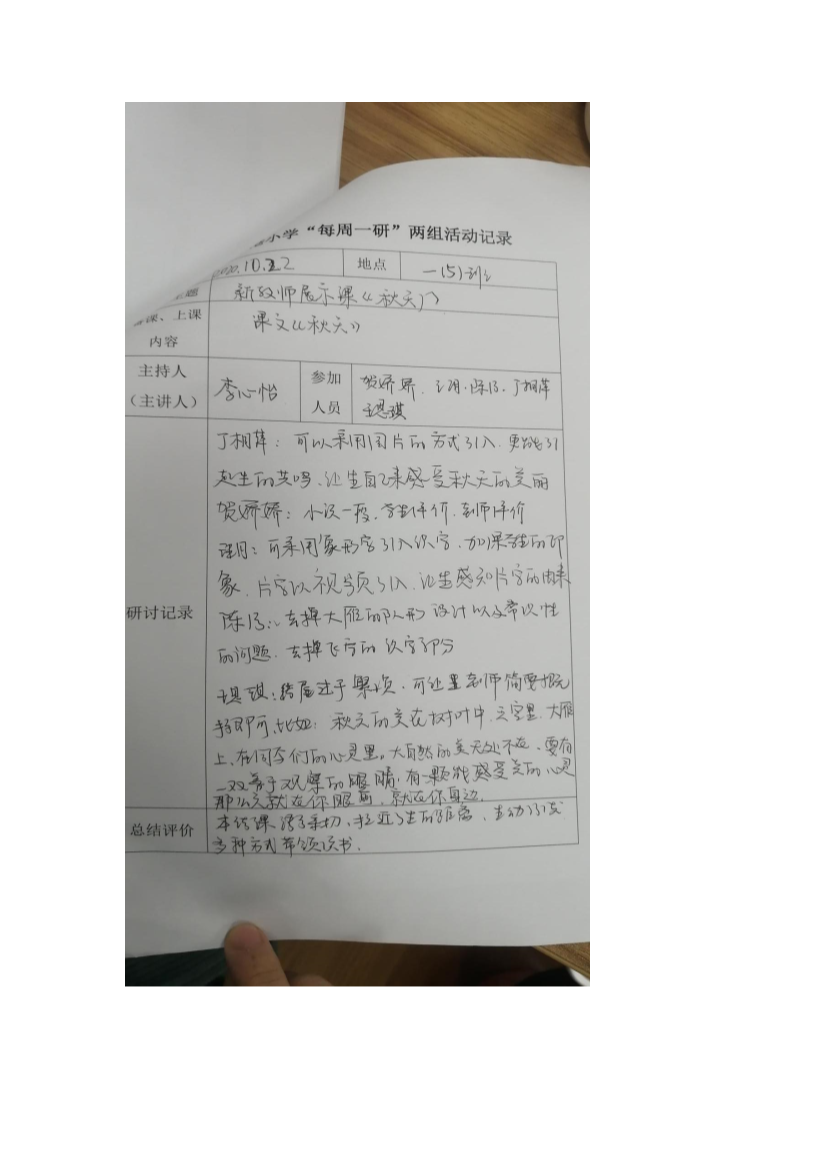 小学“每周一研”两组活动记录
10.22 地点 一(5)班
题 新教师展示课《秋天》
课、上课 内容 课文《秋天》
主持人 (主讲人) 李心怡 参加 人员 贺娇娇、 丁相萍
研讨记录
丁相萍：可以采用图片的方式引入，更能引
起生的共鸣，让生自己来感受秋天的美丽
贺娇娇：小汉一段，学生评价，老师评价
可采用象形字引入识字，加深学生的印
象，片字以视频引入，让生感知片字的由来
陈 ：去掉大雁的队形设计以及常识性
的问题，去掉飞 的识字部分
琪：结尾过于累赘，可让里老师简要概
括即可，比如：秋天的美在树叶中、天空里、大雁
上、在同学们的心灵里。大自然的美无处不在，要有
一双善于观察的眼睛，有一颗能感受美的心灵
那么美就在你眼前，就在你身边。
总结评价 本节课语言亲切，拉近了生的距离，生动 
多种方式带领读书.